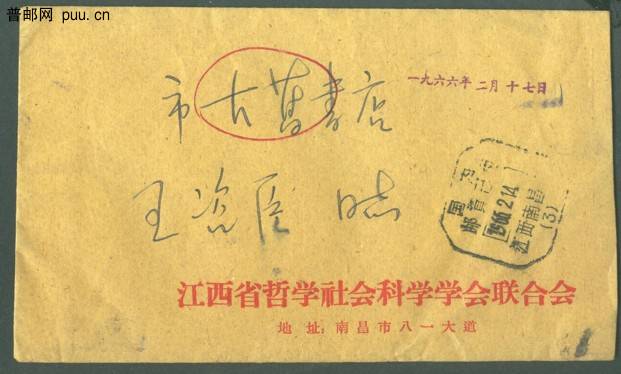 普邮网 puu.cn
一九六六年二月十七日
市古旧书店
王咨臣 同志
国内
邮资已付
1966.2.14
江西南昌
(3)
江西省哲学社会科学学会联合会
地址:南昌市八一大道